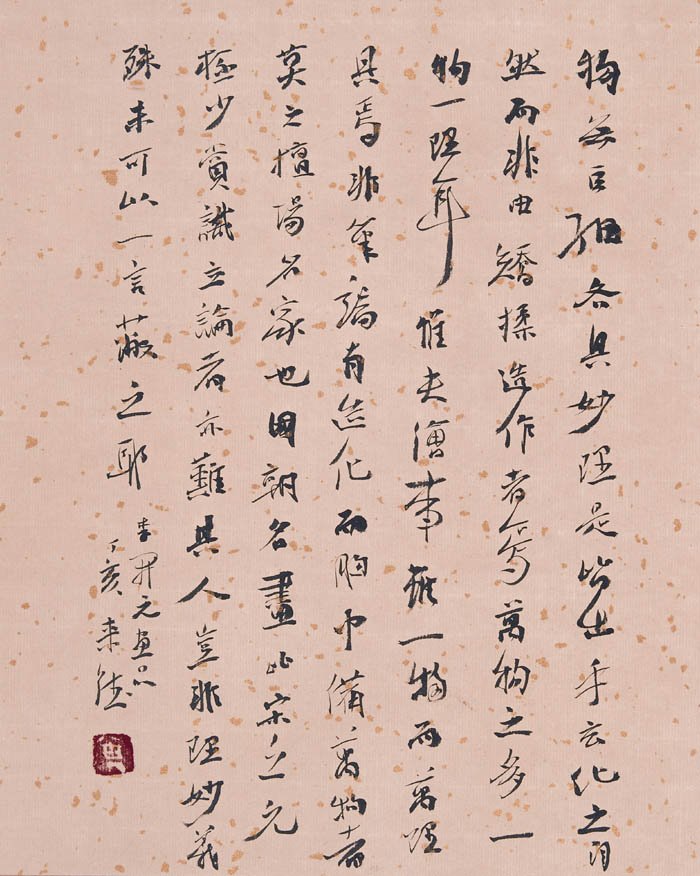 物無巨細各具妙理是皆出乎玄化之自
然而非由矯揉造作者焉萬物之多一
物一理耳惟夫繪事雖一物而萬理
具焉非筆端有造化而胸中備萬物者
莫之擅場名家也國朝名畫比宋之元
極少賞識立論者亦難其人豈非理妙義
殊未可以一言蔽之耶
李開先畫品
丁亥來德